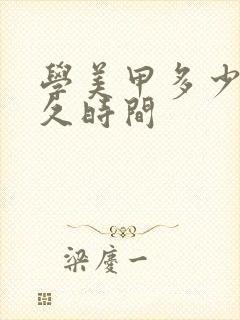 學美甲多少
久時間
梁慶一